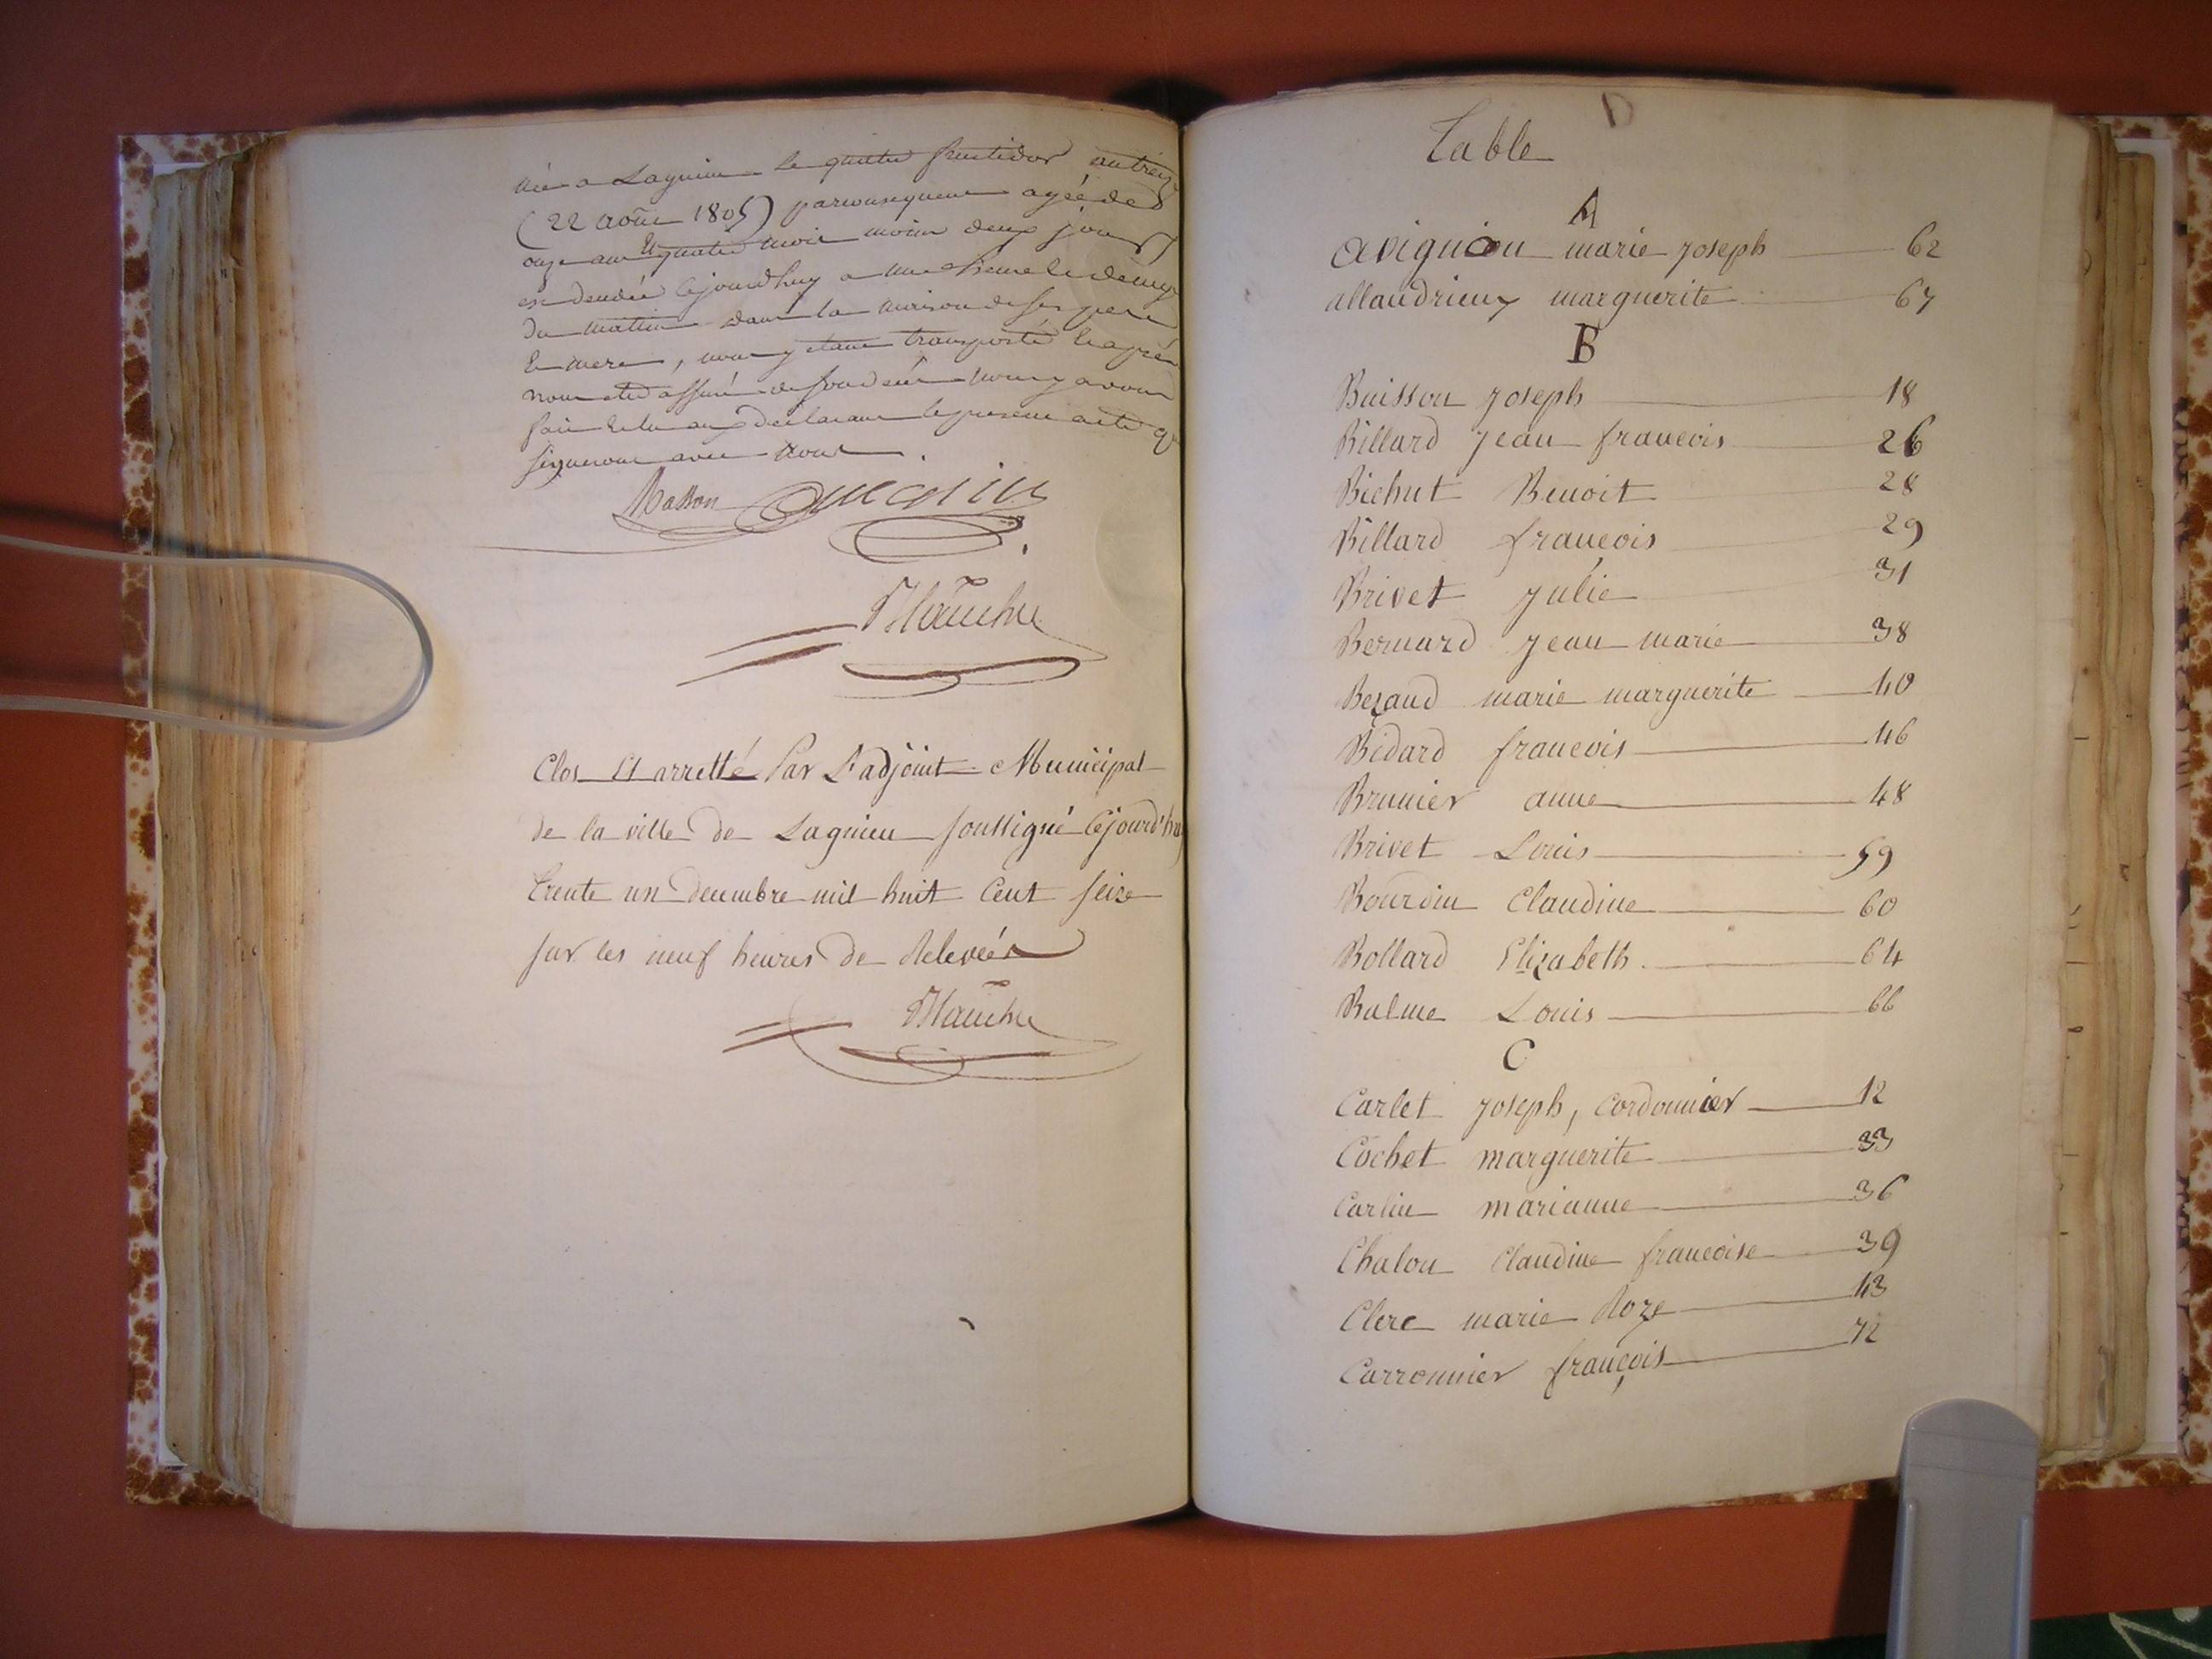 née a Lagnieu le quatre fructidor an treize
(22 août 1805) par consequent agée de
onze ans et quatre mois moins deux jours
est decedée cejourdhuy a une heure et demye
du matin dans la maison de ses pere
et mere, nous y etant transporté et apres
nous etre assuré de son decés nous y avons
fait et lu aux declarants le present acte q
signeront avec nous.
Masson
Clos Et arretté Par L'adjoint Municipal
de la ville de Lagnieu soussigné cejourd'huy
trente un decembre mil huit Cent seize
sur les neuf heures de Relevée
D
Table
A
avignion marie joseph 62
allandrieux marguerite 67
B
Buisson joseph 18
Billard jean francois 26
Bichut Benoit 28
Billard francois 29
Brivet julie 31
Bernard jean marie 38
Bezand marie marguerite 40
Bidard francois 46
Brunier anne 48
Brivet Louis 59
Bourdin Claudine 60
Bollard Elizabeth 64
Balme Louis 66
C
Carlet joseph, cordonnier 12
Cochet marguerite 33
Carlin marianne 36
Chalon Claudine francoise 39
Clerc marie Roze 43
Carronnier françois 72